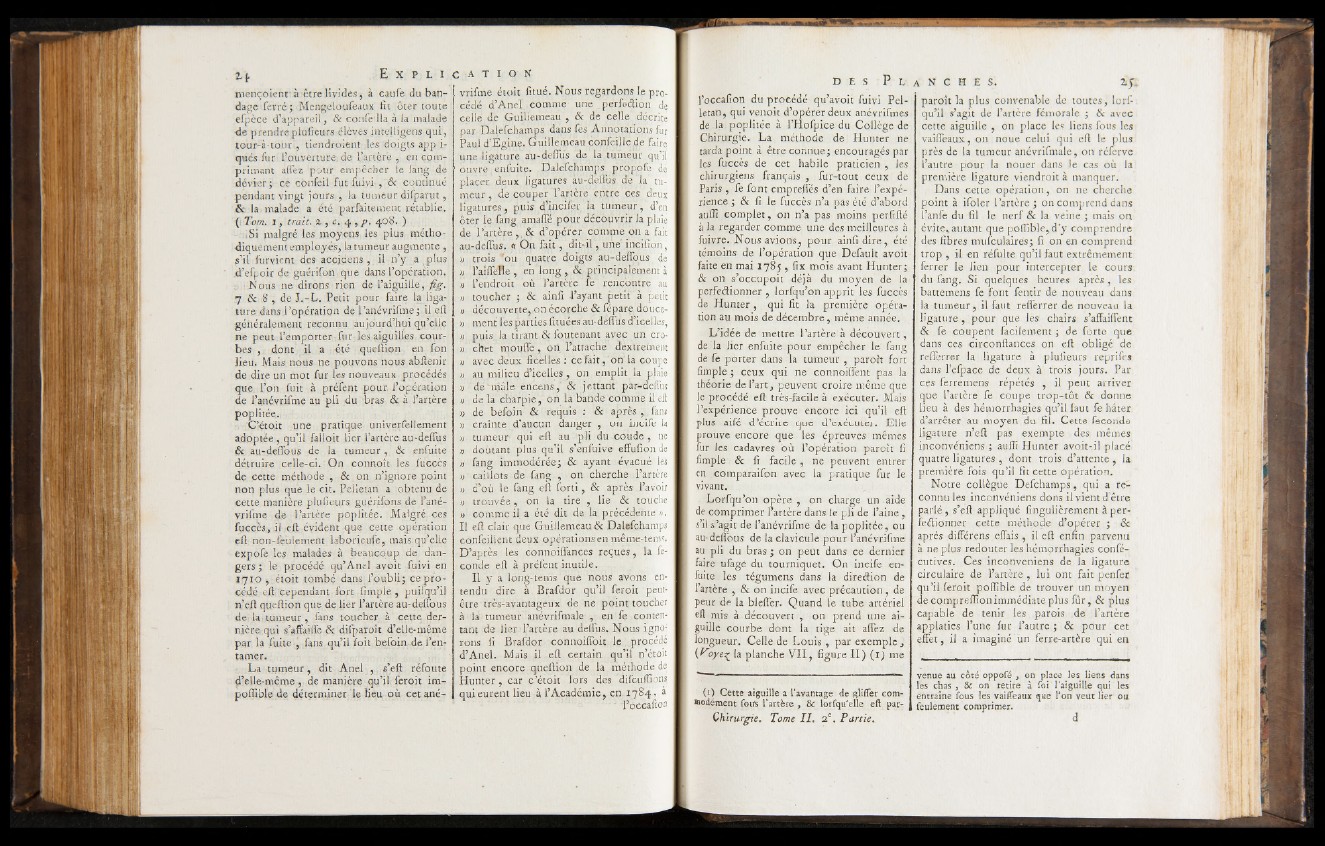 24
EXPLICATION
mençoient à être livides, à caufe du ban-
dage ferré ; Mengeloufeaux fit ôter toute
efpèce d'appareil, & confeilla à la malade
de prendre plufieurs élèves intelligens qui,
tour-à-tour, tiendroient les doigts appli-
qués fur l'ouverture de l'artère, en com-
primant affez pour empêcher le fang de
dévier ; ce confeil fut fuivi, & continué
pendant vingt jours, la tumeur difparut,
& la malade a été parfaitement rétablie.
( Tom. 1, trait. 2, c. 4, p. 408. )
Si malgré les moyens les plus métho-
diquement employés, la tumeur augmente,
s'il furvient des accidens, il n'y a plus
d'efpoir de guérifon que dans l'opération.
Nous ne dirons rien de l'aiguille, fig.
7 & 8, de J.-L. Petit pour faire la liga-
ture dans l'opération de l'anévrifme ; il eft
généralement reconnu aujourd'hui qu'elle
ne peut l'emporter fur les aiguilles cour-
bes, dont il a été queftion en fon
lieu. Mais nous ne pouvons nous abftenir
de dire un mot fur les nouveaux procédés
que l'on fuit à préfent pour l'opération
de l'anévrifme au pli du bras & à l'artère
poplitée.
C'étoit une pratique univerfellement
adoptée, qu'il falloit lier l'artère au-deffus
& au-deffous de la tumeur, & enfuite
détruire celle-ci. On connoît les fuccès
de cette méthode, & on n'ignore point
non plus que le cit. Pelletan a obtenu de
cette manière plufieurs guérifons de l'ané-
vrifme de l'artère poplitée. Malgré ces
fuccès, il eft évident que cette opération
eft non-feulement laborieufe, mais qu'elle
expofe les malades à beaucoup de dan-
gers ; le procédé qu'Anel avoit fuivi en
1710, étoit tombé dans l'oubli ; ce pro-
cédé eft cependant fort fimple, puifqu'il
n'eft queftion que de lier l'artère au-deffous
de la tumeur, fans toucher à cette der-
nière qui s'affaiffe & difparoît d'elle-même
par la fuite, fans qu'il foit befoin de l'en-
tamer.
La tumeur, dit Anel, s'eft réfoute
d'elle-même, de manière qu'il feroit im-
poffible de déterminer le lieu où cet ané-
vrifme étoit fitué. Nous regardons le pro-
cédé d'Anel comme une perfection de
celle de Guillemeau, & de celle décrite
par Dalefchamps dans fes Annotations fur
Paul d'Egine. Guillemeau confeille de faire
une ligature au-deffus de la tumeur qu'il
ouvre enfuite. Dalefchamps propofe de
placer deux ligatures au-deffus de la tu-
meur, de couper l'artère entre ces deux
ligatures, puis d'incifer la tumeur, d'en
ôter le fang amaffé pour découvrir la plaie
de l'artère, & d'opérer comme on a fait
au-deffus. « On fait, dit-il, une incifion,
» trois ou quatre doigts au-deffous de
» l'aiffelle, en long, & principalement à
» l'endroit où l'artère fe rencontre au
» toucher ; & ainfi l'ayant petit à petit
» découverte, on écorche & fépare douce-
» ment les parties fituées au-deffus d'icelles,
» puis la tirant & foutenant avec un cro-
» chet mouffe, on l'attache dextrement
» avec deux ficelles : ce fait, on la coupe
» au milieu d'icelles, on emplit la plaie
» de mâle encens, & jettant par-deffus
» de la charpie, on la bande comme il eft
» de befoin & requis : & après, fans
» crainte d'aucun danger, on incife la
» tumeur qui eft au pli du coude, ne
» doutant plus qu'il s'enfuive effufion de
» fang immodérée ; & ayant évacué les
» caillots de fang, on cherche l'artère
» d'où le fang eft forti, & après l'avoir
» trouvée, on la tire, lie & touche
» comme il a été dit de la précédente ».
Il eft clair que Guillemeau & Dalefchamps
confeillent deux opérations en même-tems.
D'après les connoiffances reçues, la fe-
conde eft à préfent inutile.
Il y a long-tems que nous avons en-
tendu dire à Brafdor qu'il feroit peut-
être très-avantageux de ne point toucher
à la tumeur anévrifmale, en fe conten-
tant de lier l'artère au deffus. Nous igno-
rons fi Brafdor connoiffoit le procédé
d'Anel. Mais il eft certain qu'il n'étoit
point encore queftion de la méthode de
Hunter, car c'étoit lors des difcuffions
qui eurent lieu à l'Académie, en 1784, à
l'occafion
DES PLANCHES.
25
l'occafion du procédé qu'avoit fuivi Pel-
letan, qui venoit d'opérer deux anévrifmes
de la poplitée à l'Hofpice du Collège de
Chirurgie. La méthode de Hunter ne
tarda point à être connue ; encouragés par
les fuccès de cet habile praticien, les
chirurgiens français, fur-tout ceux de
Paris, fe font empreffés d'en faire l'expé-
rience ; & fi le fuccès n'a pas été d'abord
auffi complet, on n'a pas moins perfifté
à la regarder comme une des meilleures à
fuivre. Nous avions, pour ainfi dire, été
témoins de l'opération que Default avoit
faite en mai 1785, fix mois avant Hunter ;
& on s'occupoit déjà du moyen de la
perfectionner, lorfqu'on apprit les fuccès
de Hunter, qui fit la première opéra-
tion au mois de décembre, même année.
L'idée de mettre l'artère à découvert,
de la lier enfuite pour empêcher le fang
de fe porter dans la tumeur, paroît fort
fimple ; ceux qui ne connoiffent pas la
théorie de l'art, peuvent croire même que
le procédé eft très-facile à exécuter. Mais
l'expérience prouve encore ici qu'il eft
plus aifé d'écrire que d'exécuter. Elle
prouve encore que les épreuves mêmes
fur les cadavres où l'opération paroît fi
fimple & fi facile, ne peuvent entrer
en comparaifon avec la pratique fur le
vivant.
Lorfqu'on opère, on charge un aide
de comprimer l'artère dans le pli de l'aine,
s'il s'agit de l'anévrifme de la poplitée, ou
au-deffous de la clavicule pour l'anévrifme
au pli du bras ; on peut dans ce dernier
faire ufage du tourniquet. On incife en-
fuite les tégumens dans la direction de
l'artère, & on incife avec précaution, de
peur de la bleffer. Quand le tube artériel
eft mis à découvert, on prend une ai-
guille courbe dont la tige ait affez de
longueur. Celle de Louis, par exemple,
(Voyez la planche VII, figure II) (1) me
(1) Cette aiguille a l'avantage de gliffer com-
modément fous l'artère, & lorfqu'elle eft par-
Chirurgie. Tome II. 2e. Partie.
paroît la plus convenable de toutes, lorf-
qu'il s'agit de l'artère fémorale ; & avec
cette aiguille, on place les liens fous les
vaiffeaux, on noue celui qui eft le plus
près de la tumeur anévrifmale, on réferve
l'autre pour la nouer dans le cas où la
première ligature viendroit à manquer.
Dans cette opération, on ne cherche
point à ifoler l'artère ; on comprend dans
l'anfe du fil le nerf & la veine ; mais on
évite, autant que poffible, d'y comprendre
des fibres mufculaires; fi on en comprend
trop, il en réfulte qu'il faut extrêmement
ferrer le lien pour intercepter le cours
du fang. Si quelques heures après, les
battemens fe font fentir de nouveau dans
la tumeur, il faut refferrer de nouveau la
ligature, pour que les chairs s'affaiffent
& fe coupent facilement ; de forte que
dans ces circonftances on eft obligé de
refferrer la ligature à plufieurs reprifes
dans l'efpace de deux à trois jours. Par
ces ferremens répétés, il peut arriver
que l'artère fe coupe trop-tôt & donne
lieu à des hémorrhagies qu'il faut fe hâter
d'arrêter au moyen du fil. Cette feconde
ligature n'eft pas exempte des mêmes
inconvéniens ; auffi Hunter avoit-il placé
quatre ligatures, dont trois d'attente, la
première fois qu'il fit cette opération.
Notre collègue Defchamps, qui a re-
connu les inconvéniens dons il vient d'être
parlé, s'eft appliqué fingulièrement à per-
fectionner cette méthode d'opérer ; &
après différens effais, il eft enfin parvenu
à ne plus redouter les hémorrhagies confé-
cutives. Ces inconveniens de la ligature
circulaire de l'artère, lui ont fait penfer
qu'il feroit poffible de trouver un moyen
de compreffion immédiate plus fûr, & plus
capable de tenir les parois de l'artère
applaties l'une fur l'autre ; & pour cet
effet, il a imaginé un ferre-artère qui en
venue au côté oppofé, on place les liens dans
les chas, & on retire à foi l'aiguille qui les
entraîne fous les vaiffeaux que l'on veut lier ou
feulement comprimer.
d